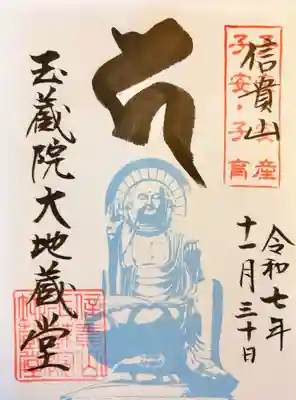 信貴山
子安・子育
令和七年
十一月三十日
玉蔵院大地蔵堂